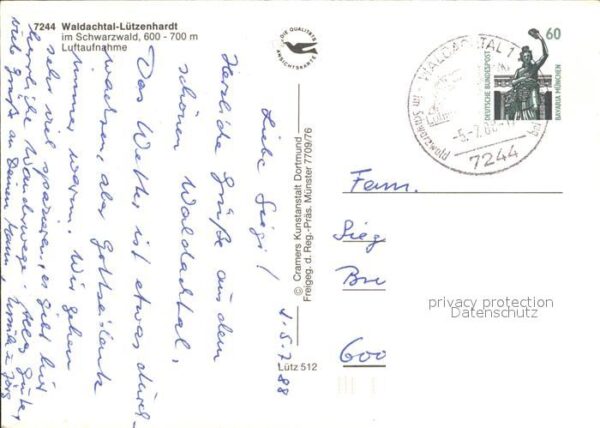 7244 Waldachtal-Lützenhardt
im Schwarzwald, 600 - 700 m
Luftaufnahme
DIE QUALITÄTS
ANSICHTSKARTE
© Cramers Kunstanstalt Dortmund
Freigeg. d. Reg.-Präs. Münster 7709/76
Lütz 512
5. 7. 88
Liebe Siegi!
Herzliche Grüße aus dem
schönen Waldachtal.
Das Wetter ist etwas durch-
wachsen, aber Gottseidank
immer warm. Wir gehen
sehr viel spazieren, es gibt hier
herrliche Wanderwege. Alles Gute,
viele Grüße an Deinen Mann, Ursula
WALDACHTAL 1
7244
60
DEUTSCHE BUNDESPOST
BAVARIA MÜNCHEN
Fam.
Sieg
600
privacy protection
Datenschutz